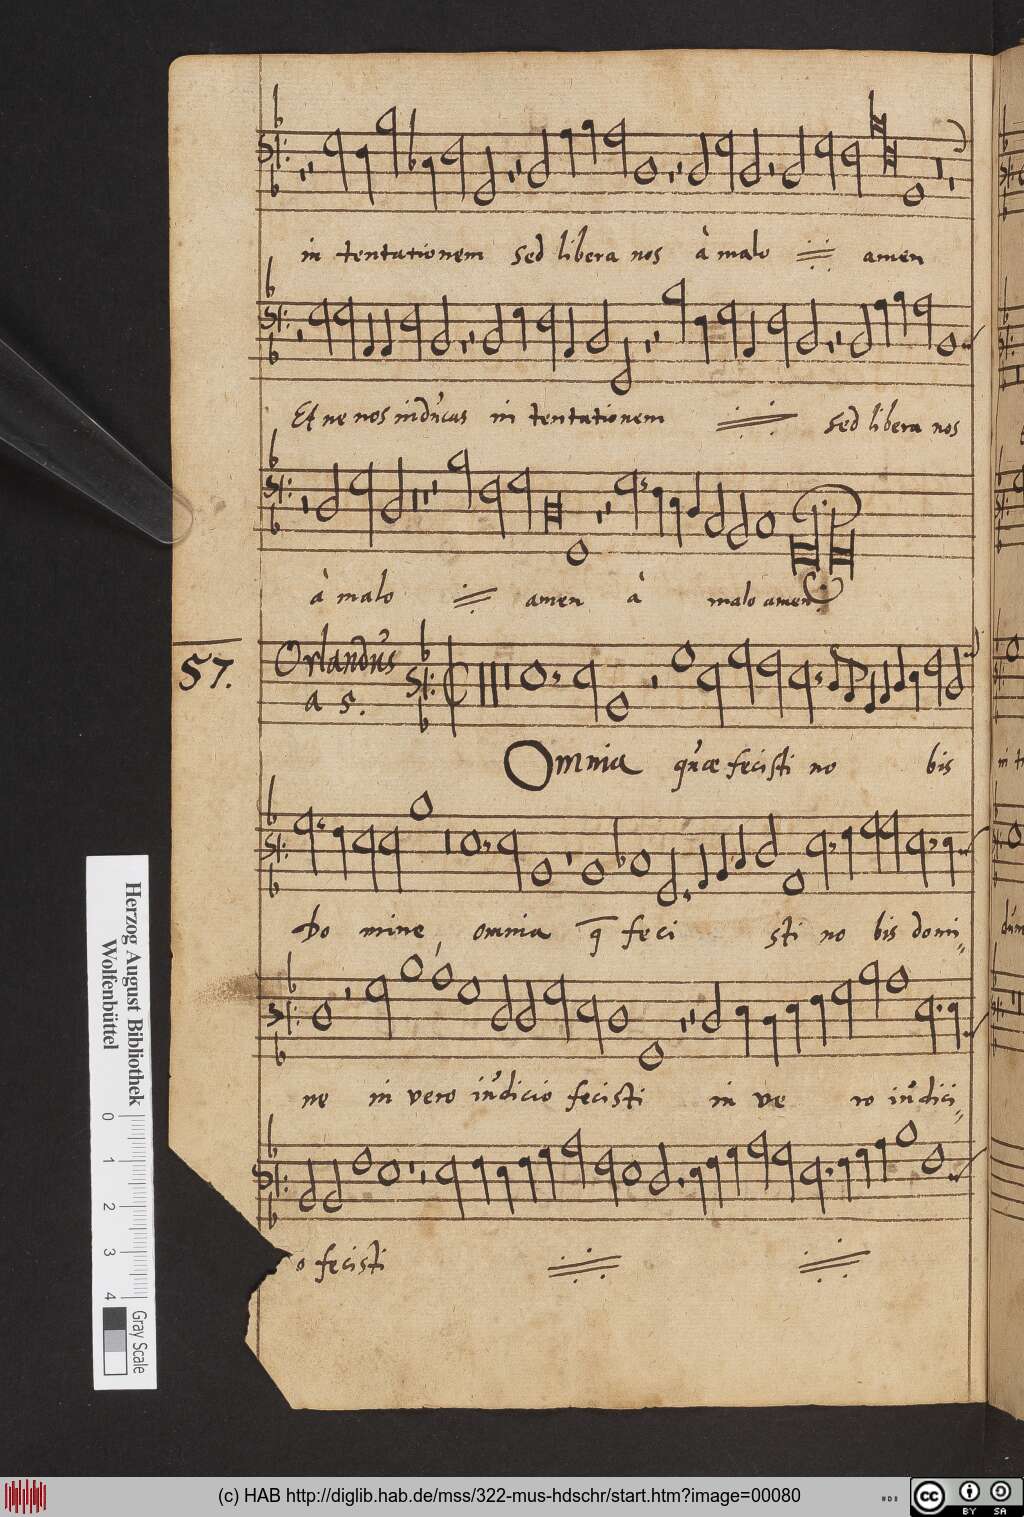 in tentationem sed libera nos à malo amen
Et ne nos indúcas in tentationem sed libera nos
à malo amen à malo amen
57.
Orlandús
a 5.
Omnia qúæ fecisti no bis
Do mine, omnia q̄ feci sti no bis domi„
ne in vero iúdicio fecisti in ve ro iúdici„
o fecisti
Herzog August Bibliothek
Wolfenbüttel
0 1 2 3 4
Gray Scale
(c) HAB http://diglib.hab.de/mss/322-mus-hdschr/start.htm?image=00080
cc BY SA